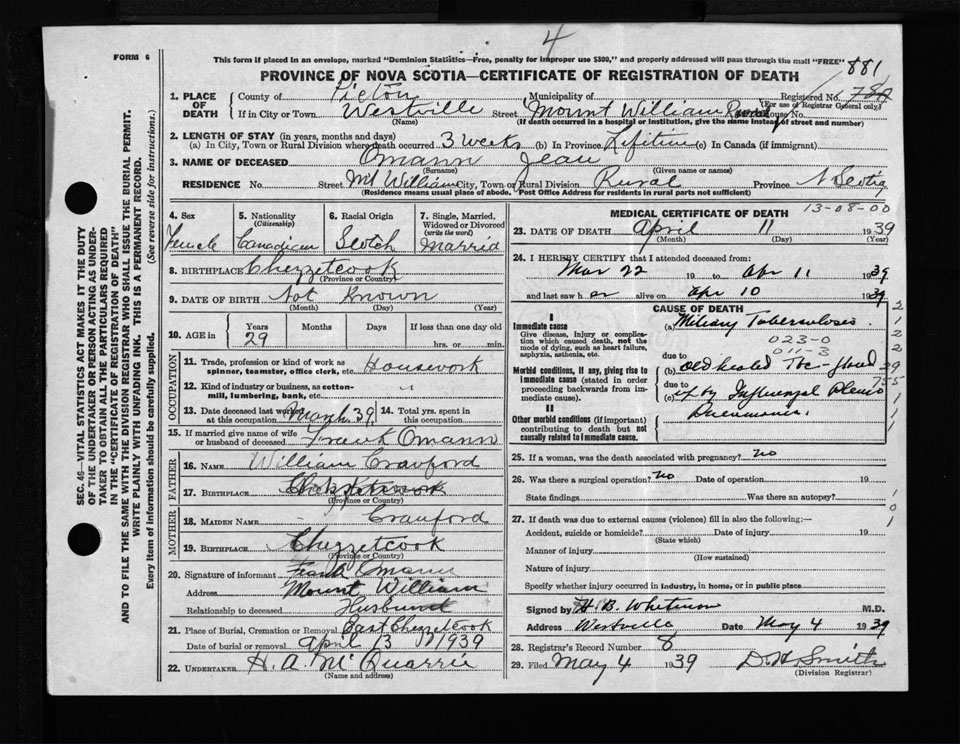 4
FORM 6
This form if placed in an envelope, marked "Dominion Statistics—Free, penalty for improper use $300," and properly addressed will pass through the mail "FREE"
881
PROVINCE OF NOVA SCOTIA—CERTIFICATE OF REGISTRATION OF DEATH
SEC. 46—VITAL STATISTICS ACT MAKES IT THE DUTY
OF THE UNDERTAKER OR PERSON ACTING AS UNDER-
TAKER TO OBTAIN ALL THE PARTICULARS REQUIRED
IN THE "CERTIFICATE OF REGISTRATION OF DEATH"
AND TO FILE THE SAME WITH THE DIVISION REGISTRAR WHO SHALL ISSUE THE BURIAL PERMIT.
WRITE PLAINLY WITH UNFADING INK. THIS IS A PERMANENT RECORD.
Every item of information should be carefully supplied. (See reverse side for instructions.)
1. PLACE OF DEATH
County of Pictou Municipality of Registered No.
If in City or Town Westville Street Mount William Rural House No.
(For use of Registrar General only)
(Name) (If death occurred in a hospital or institution, give the name instead of street and number)
2. LENGTH OF STAY (in years, months and days)
(a) In City, Town or Rural Division where death occurred 3 weeks (b) In Province Lifetime (c) In Canada (if immigrant)
3. NAME OF DECEASED Omann Jean
(Surname) (Given name or names)
RESIDENCE No. Street Mt William City, Town or Rural Division Rural Province N Scotia
(Residence means usual place of abode. Post Office Address for residents in rural parts not sufficient)
4. Sex Female
5. Nationality (Citizenship) Canadian
6. Racial Origin Scotch
7. Single, Married, Widowed or Divorced (write the word) Married
8. BIRTHPLACE Chezzetcook
(Province or Country)
9. DATE OF BIRTH Not Known
(Month) (Day) (Year)
10. AGE in Years Months Days If less than one day old
29 hrs. or min.
OCCUPATION
11. Trade, profession or kind of work as spinner, teamster, office clerk, etc. Housework
12. Kind of industry or business, as cotton-mill, lumbering, bank, etc. "
13. Date deceased last worked at this occupation March 39
14. Total yrs. spent in this occupation
15. If married give name of wife or husband of deceased Frank Omann
FATHER
16. NAME William Crawford
17. BIRTHPLACE
(Province or Country)
MOTHER
18. MAIDEN NAME Crawford
19. BIRTHPLACE Chezzetcook
(Province or Country)
20. Signature of informant Frank Omann
Address Mount William
Relationship to deceased Husband
21. Place of Burial, Cremation or Removal East Chezzetcook
Date of burial or removal April 13 1939
22. UNDERTAKER H. A. McQuarrie
(Name and address)
MEDICAL CERTIFICATE OF DEATH
13-08-00
23. DATE OF DEATH April 11 1939
(Month) (Day) (Year)
24. I HEREBY CERTIFY that I attended deceased from:
Mar 22 19 to Apr 11 1939
and last saw her alive on Apr 10 1939
CAUSE OF DEATH
I
Immediate cause
Give disease, injury or complication which caused death, not the mode of dying, such as heart failure, asphyxia, asthenia, etc.
(a) Miliary Tuberculosis
023-0
011-3
due to
Morbid conditions, if any, giving rise to immediate cause (stated in order proceeding backwards from immediate cause).
(b) old healed Tbc
due to
(c) Influenzal Pleuro Pneumonia
II
Other morbid conditions (if important) contributing to death but not causally related to immediate cause.
25. If a woman, was the death associated with pregnancy? no
26. Was there a surgical operation? no Date of operation 19
State findings Was there an autopsy?
27. If death was due to external causes (violence) fill in also the following:—
Accident, suicide or homicide? Date of injury 19
(State which)
Manner of injury
(How sustained)
Nature of injury
Specify whether injury occurred in industry, in home, or in public place
Signed by H. B. Whitman M.D.
Address Westville Date May 4 1939
28. Registrar's Record Number 8
29. Filed May 4 1939 D. H. Smith
(Division Registrar)